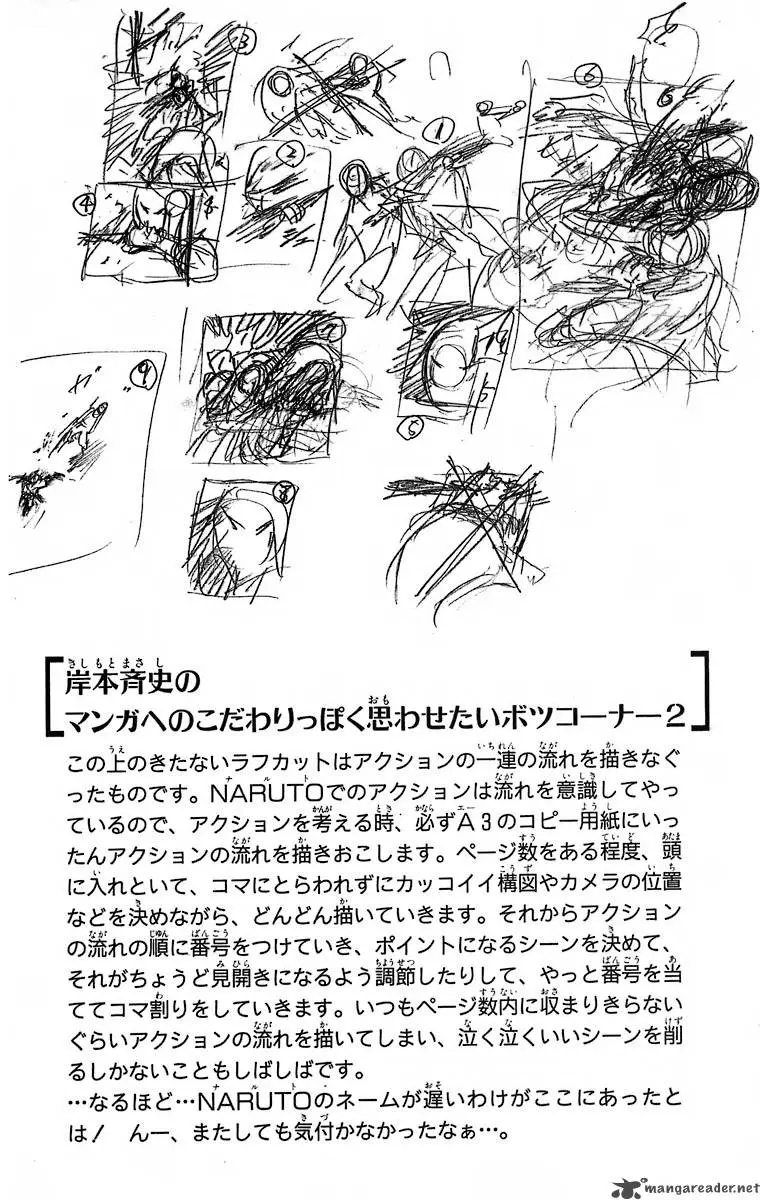 ③
⑥
①
②
④
⑦
⑨
ガ
⑤
⑧
岸本斉史の
マンガへのこだわりっぽく思わせたいボツコーナー2
この上のきたないラフカットはアクションの一連の流れを描きなぐ
ったものです。NARUTOでのアクションは流れを意識してやっ
ているので、アクションを考える時、必ずA3のコピー用紙にいっ
たんアクションの流れを描きおこします。ページ数をある程度、頭
に入れといて、コマにとらわれずにカッコイイ構図やカメラの位置
などを決めながら、どんどん描いていきます。それからアクション
の流れの順に番号をつけていき、ポイントになるシーンを決めて、
それがちょうど見開きになるよう調節したりして、やっと番号を当
ててコマ割りをしていきます。いつもページ数内に収まりきらない
ぐらいアクションの流れを描いてしまい、泣く泣くいいシーンを削
るしかないこともしばしばです。
…なるほど…NARUTOのネームが遅いわけがここにあったと
は! んー、またしても気付かなかったなぁ…。
mangareader.net